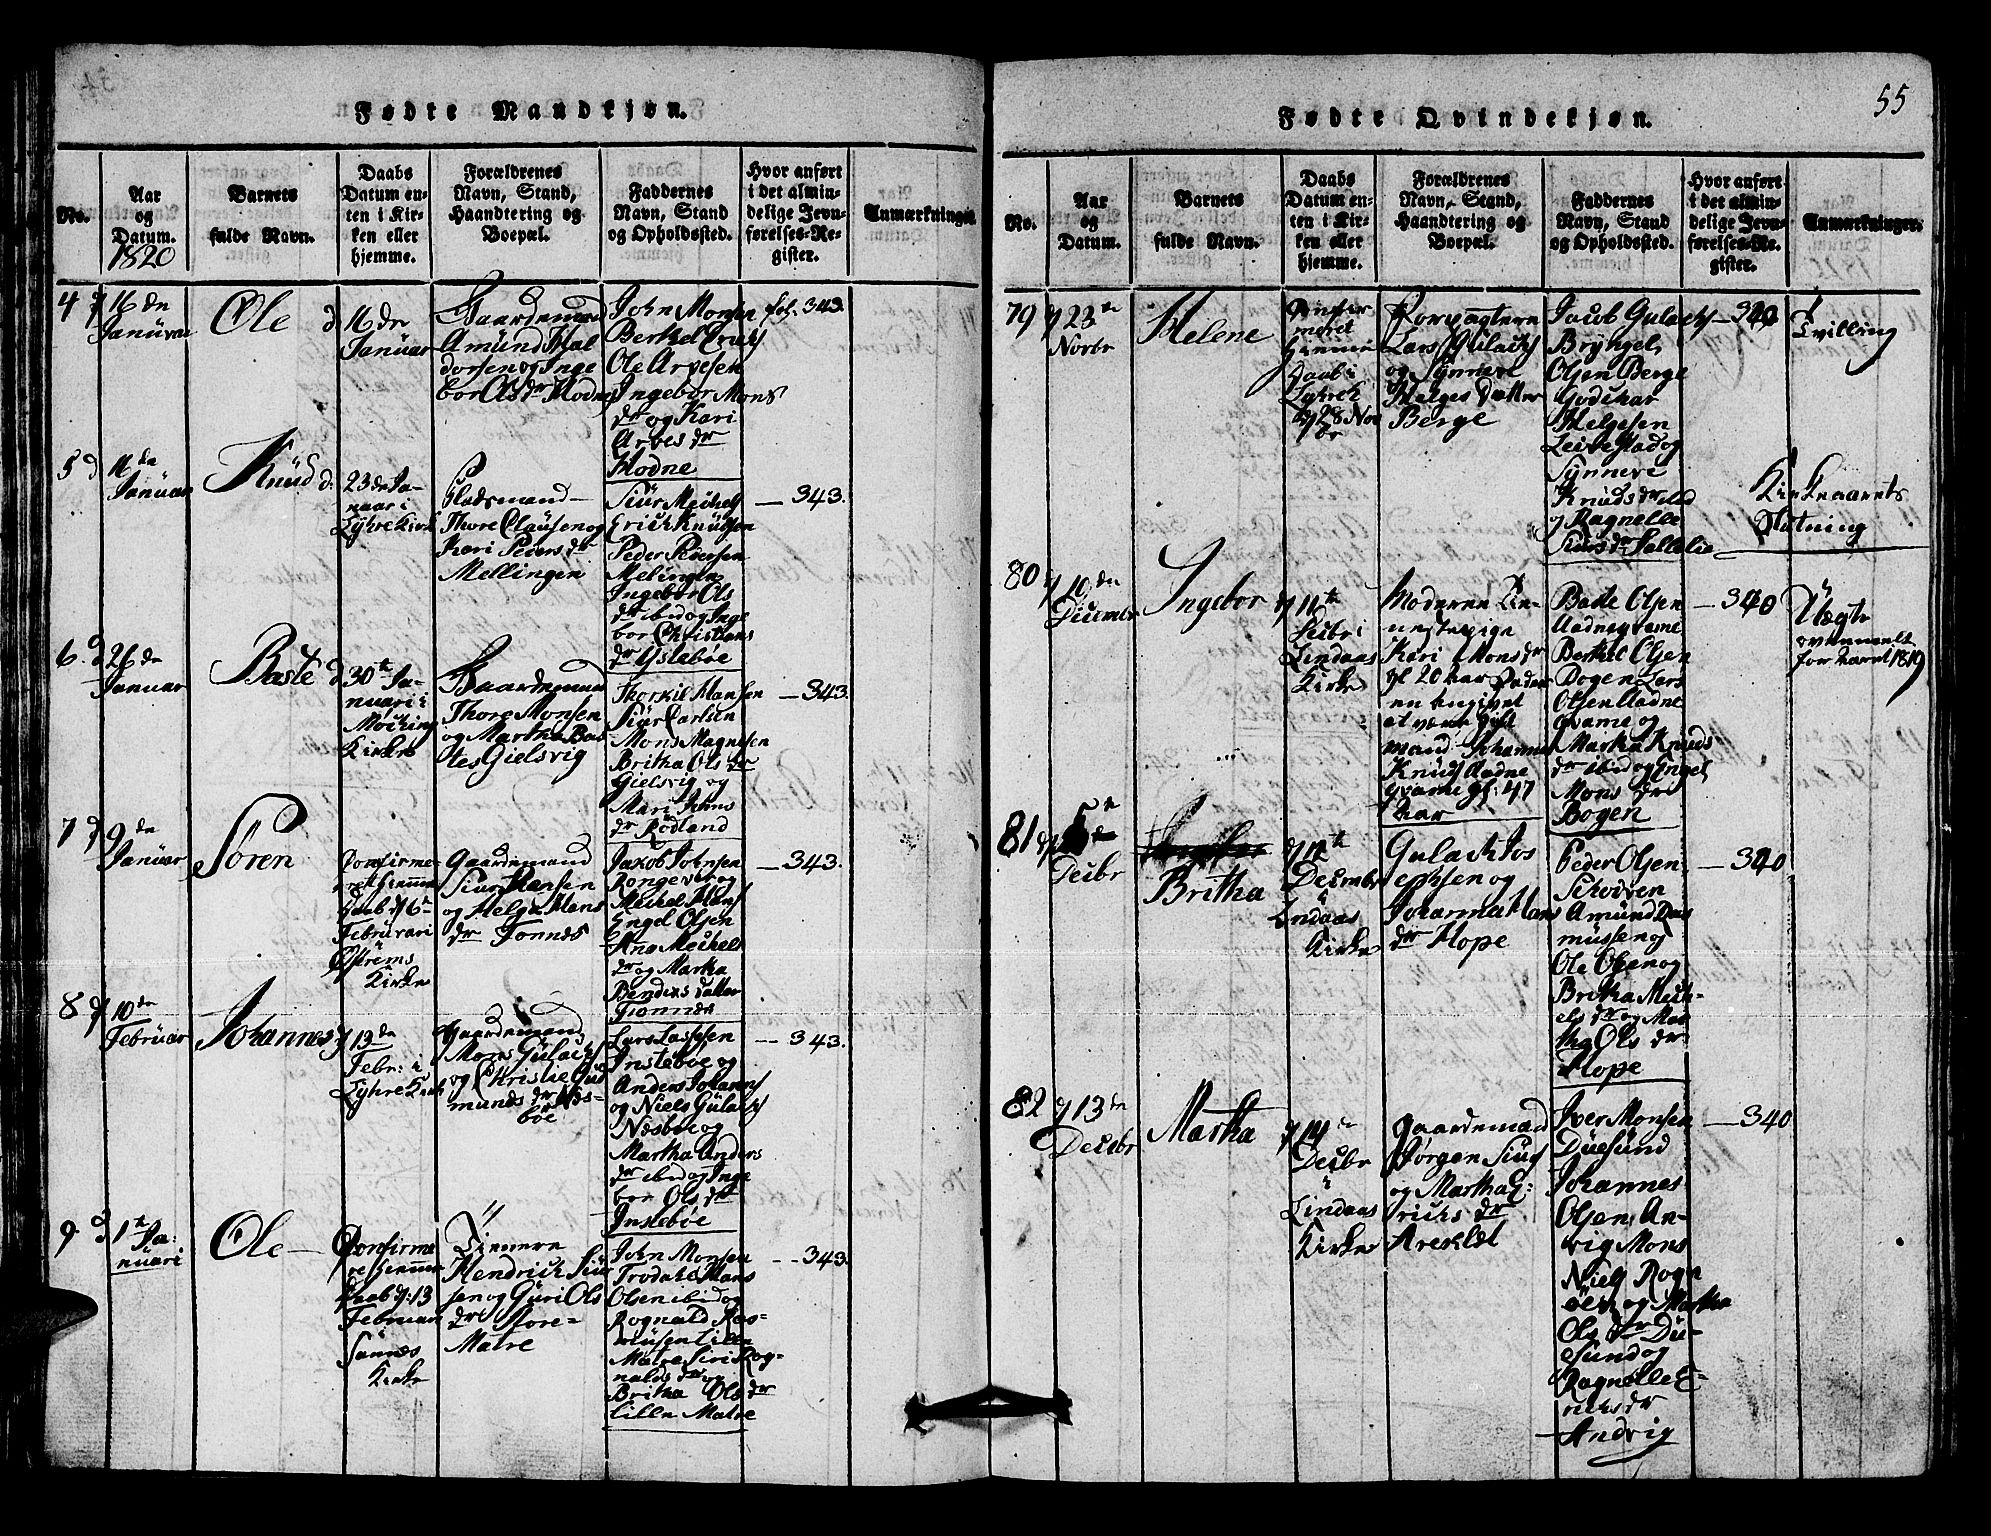 Fødte Mandkjøn.
No.
Aar
og
Datum.
1820
Barnets
fulde Navn.
Daabs
Datum en-
ten i Kir-
ken eller
hjemme.
Forældrenes
Navn, Stand,
Haandtering og
Boepæl.
Faddernes
Navn, Stand
og Opholdssted.
Hvor anført
i det almin-
delige Jevn-
førelses-Re-
gister.
Anmærkninger.
4
16 de
Januar
Ole
16 de
Januar
Gaardemand
Amund Hal
dorsen og Inge
bor Ols dr Hodne
John Monsen
Berthel
Ole Arvesen
Ingebor Mons
dr og Kari
Arves dr
Hodne
fol. 343
5
16 de
Januar
Knud
23 de Ja-
nuar i
Lyhre Kirk
Pladsmand
Thore Clausen og
Kari Peders dr
Mellingen
Siur Meckels
Erich Knudsen
Peder Iversen
Melingen
Ingebor Ols
dr ibid og Inge
bor Christians
dr Ysleböe
343.
6
26 de
Januar
Baste
30te Ja-
nuari i
Mocking
Kirke
Gaardemand
Thore Monsen
og Martha Bas
tes Gielsvig
Thorkil Hansen
Siur Carlsen
Mons Magnesen
Britha Ols dr
Gielsvig og
Mari Johns
dr Rödland
343.
7
9 de
Januar
Sören
Confirme-
ret Hiemme
daab 6te
Februari
Östrems
Kirke
Gaardemand
Siur Hansen
og Helga Hans
dr Tonnes
Jakob Johnsen
Rongever og
Meckel Hans
Engel Olsen
Ana Meckels
dr og Martha
Benders datter
343.
8
10 de
Februar
Johannes
13 de
Febr: i
Lyhre Kirk
Gaardemand
Mons Gulachs
og Christie Gud
munds dr Nes-
böe
Lars Lassesen
Insteböe og
Anders Johanns
og Niels Gulachs
Næsböe og
Martha Anders
dr ibid og Inge
bor Ols dr
Insteböe
343.
9
1te Ja-
nuari
Ole
Confirme
ret Hiemme
daab d: 13
Februar
Sannes
Kirke
Hendrich Siur
sen og Guri Ols
dr Store-
Matre
John Monsen
Trodahl Hans
Olsen ibid og
Rognald Ras-
musen Lille
Matre Siri Rog-
nalds dr og
Britha Ols dr
Lille Matre
343.
55
Fødte Qvindekjøn.
No.
Aar
og
Datum.
Barnets
fulde Navn.
Daabs
Datum en-
ten i Kir-
ken eller
hjemme.
Forældrenes
Navn, Stand,
Haandtering og
Boepæl.
Faddernes
Navn, Stand
og Opholdssted.
Hvor anført
i det almin-
delige Jevn-
førelses-Re-
gister.
Anmærkninger.
79
23 de
Novbr
Helene
Confir
meret
Hiemme
daab i
Lyhre K
28 Nov
br
Lars Gulachs
og Synneve
Helges Datter
Berge
Jacob Gulachs
Bryngel
Olsen Berge
Godskar
Helgesen
Leirestad og
Synneve
Knuds dr ibid
og Ragnelle
Siurs dr
340
Tvilling
Kirkeaarets
Slutning
80
10 de
Decembr
Ingebor
11te
Decbr i
Lindaas
Kirke
Moderen
Kari Mons dr
gl 20 aar Fader
en angivet
at være gift
mand Johannes
Knuds Aadne
qvame gl: 47
aar
Baste Olsen
Aadneqvame
Berthel Olsen
Bogen Lars
Olsen Aadne
qvame og
Martha Knuds
dr ibid og Engel
Mons dr
Bogen
340
Uægte
for aaret 1819
81
5te
Decbr
Britha
12te
Decembr
Lindaas
Kirke
Gulach Jos
ephsen og
Johanna Hans
dr Hope
Peder Olsen
Amund Ras
mussen og
Ole Olsen og
Britha Meck-
els dr og Mar
tha Ols dr
Hope
340
82
13 de
Decbr
Martha
14 de
Decbr
Lindaas
Kirke
Gaardemand
Jørgen Siurs
og Martha E-
richs dr
Areklet
Iver Monsen
Duesund
Johannes
Olsen An-
vig Mons
Niels Rogn
og Martha
Ols dr Du-
esund og
Ragnelle E-
richs dr
Andvig
340